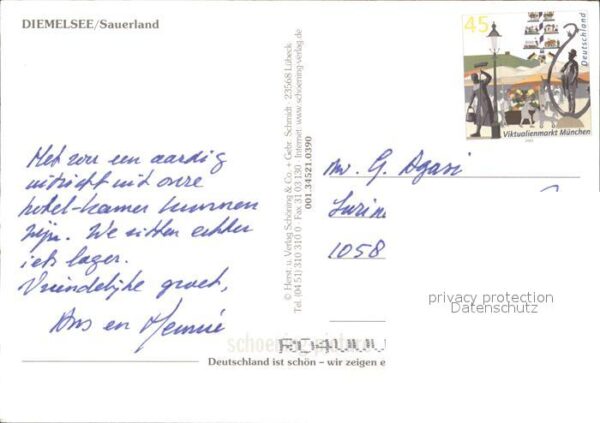 DIEMELSEE/Sauerland
Het zou een aardig
uitzicht uit onze
hotel-kamer kunnen
zijn. We zitten echter
iets lager.
Vriendelijke groet,
Ans en Hennie
© Herst. u. Verlag Schöning & Co. + Gebr. Schmidt 23568 Lübeck
Tel. (04 51) 310 310 0 · Fax 31 03 130 · Internet: www.schoening-verlag.de
001.34521.0390
45
Deutschland
Viktualienmarkt München
G. Agasi
1058
privacy protection
Datenschutz
Deutschland ist schön – wir zeigen e